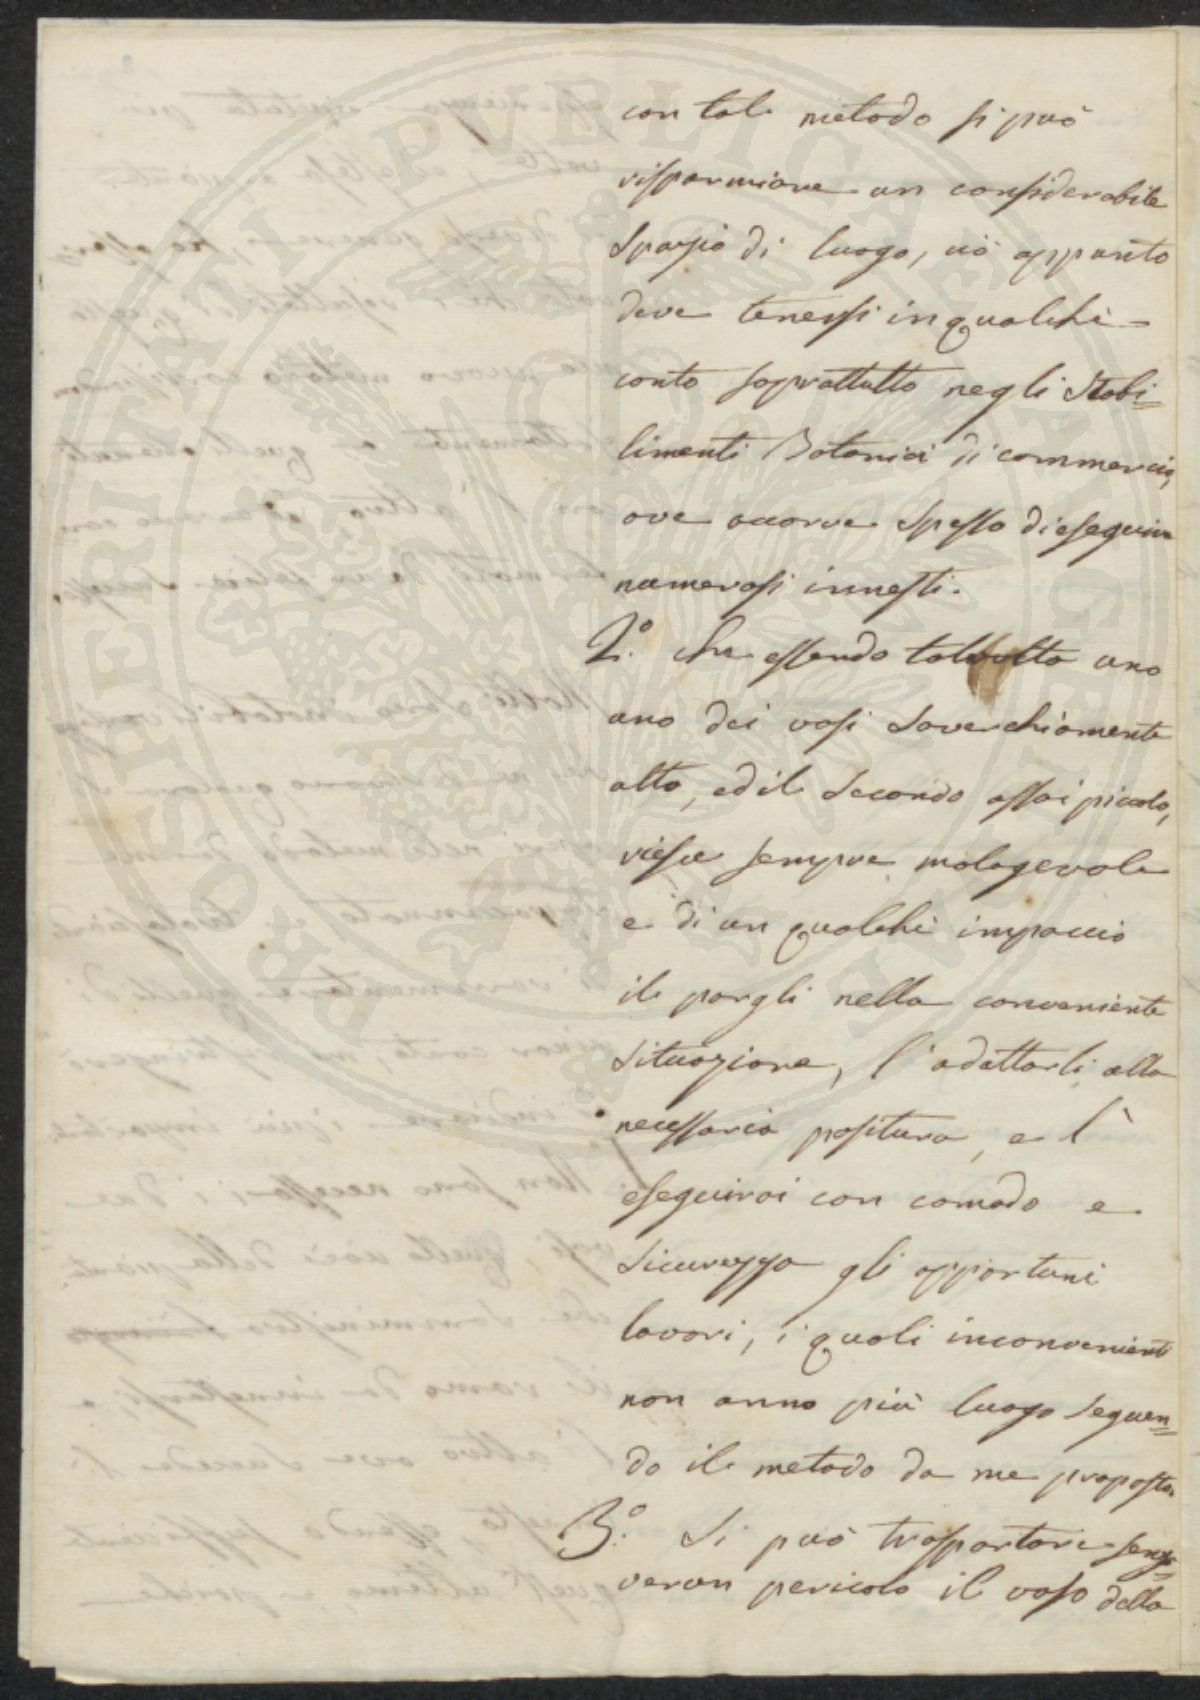 con tale metodo si può
risparmiare un considerabile
spazio di luogo, ciò appunto
deve tenersi in qualche
conto soprattutto negli Stabi=
limenti Botanici di commercio,
ove occorre spesso di eseguire
numerosi innesti.
2.º Che essendo talvolta uno
uno dei vasi soverchiamente
alto, ed il secondo assai piccolo,
riesce sempre malagevole
e di un qualche impaccio
il porgli nella conveniente
situazione, l'adattarli alla
necessaria positura, e l'
eseguirvi con comodo e
sicurezza gli opportuni
lavori, i quali inconvenienti
non anno più luogo seguen=
do il metodo da me proposto.
3.º Si può trasportare senza
verun pericolo il vaso della
PROSPERITATI PUBLICAE AUGENDAE